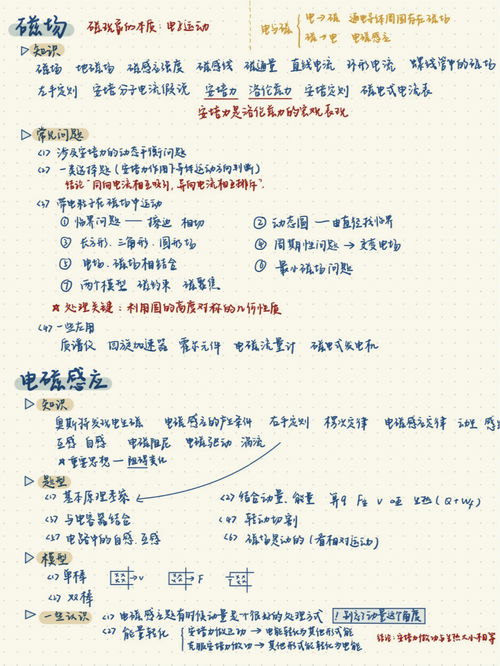 磁场 磁现象的本质:电子运动
电与磁 电→磁 通电导体周围存在磁场
磁→电 电磁感应
▷知识
磁场 地磁场 磁感应强度 磁感线 磁通量 直线电流 环形电流 螺线管中的磁场
左手定则 安培分子电流假说 安培力 洛伦兹力 安培定则 磁电式电流表
安培力是洛伦兹力的宏观表现
▷常见问题
<1> 涉及安培力的动态平衡问题
<2> 一类选择题(安培力作用下导体运动方向判断)
结论"同向电流相互吸引,异向电流相互排斥".
<3> 带电粒子在磁场中运动
① 临界问题 — 擦边 相切 ② 动态圆 — 由直径找临界
③ 长方形.三角形.圆形场 ④ 周期性问题 → 交变电场
⑤ 电场.磁场相结合 ⑥ 最小磁场问题
⑦ 两个模型 磁约束 磁聚焦
★处理关键:利用圆的高度对称的几何性质
<4> 一些应用
质谱仪 回旋加速器 霍尔元件 电磁流量计 磁电式发电机
电磁感应
▷知识
奥斯特发现电生磁 电磁感应的产生条件 右手定则 楞次定律 电磁感应定律 动生 感生
互感 自感 电磁阻尼 电磁驱动 涡流
★重要思想 — 阻碍变化
▷题型
<1> 基本原理考察 <2> 结合动量.能量 求q F安 v a 生热(Q+Wf)
<3> 与电容器结合 <4> 转动切割
<5> 电路中的自感.互感 <6> 磁场是动的(看相对运动)
▷模型
<1> 单棒 →v →F
<2> 双棒
▷一些认识 <1> 电磁感应题有时候动量是个很好的处理方式 !别忘了动量这个角度
<2> 能量转化 安培力做正功 → 电能转化为其他形式能
克服安培力做功 → 其他形式能转化为电能
结论:安培力做功与生热大小相等